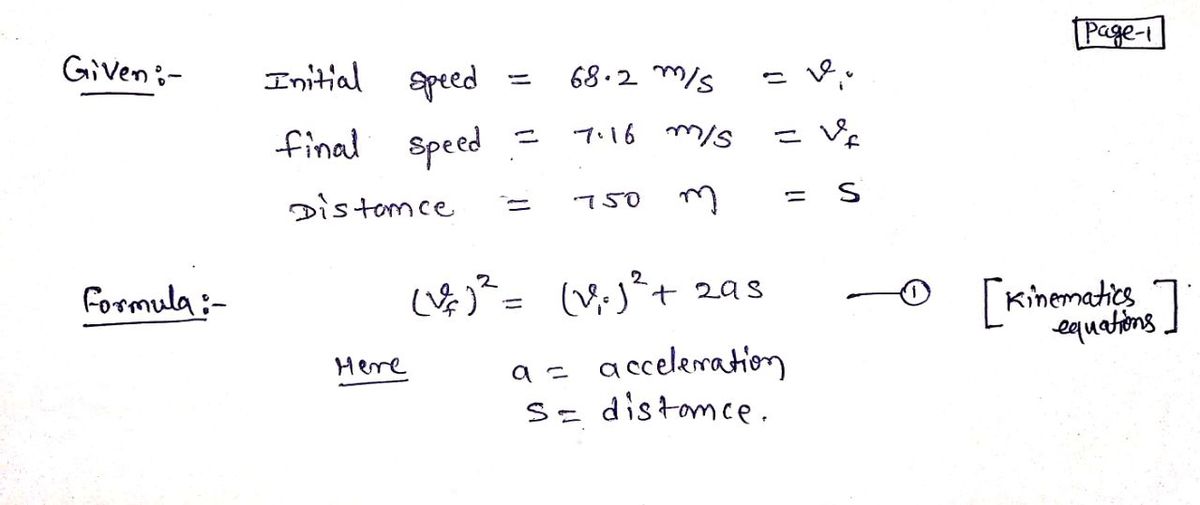 Page-1
Given:- Initial speed = 68.2 m/s = vᵢ
final speed = 7.16 m/s = v_f
Distance = 750 m = S
Formula:- (v_f)² = (vᵢ)² + 2as —① [Kinematics equations]
Here a = acceleration
S = distance.